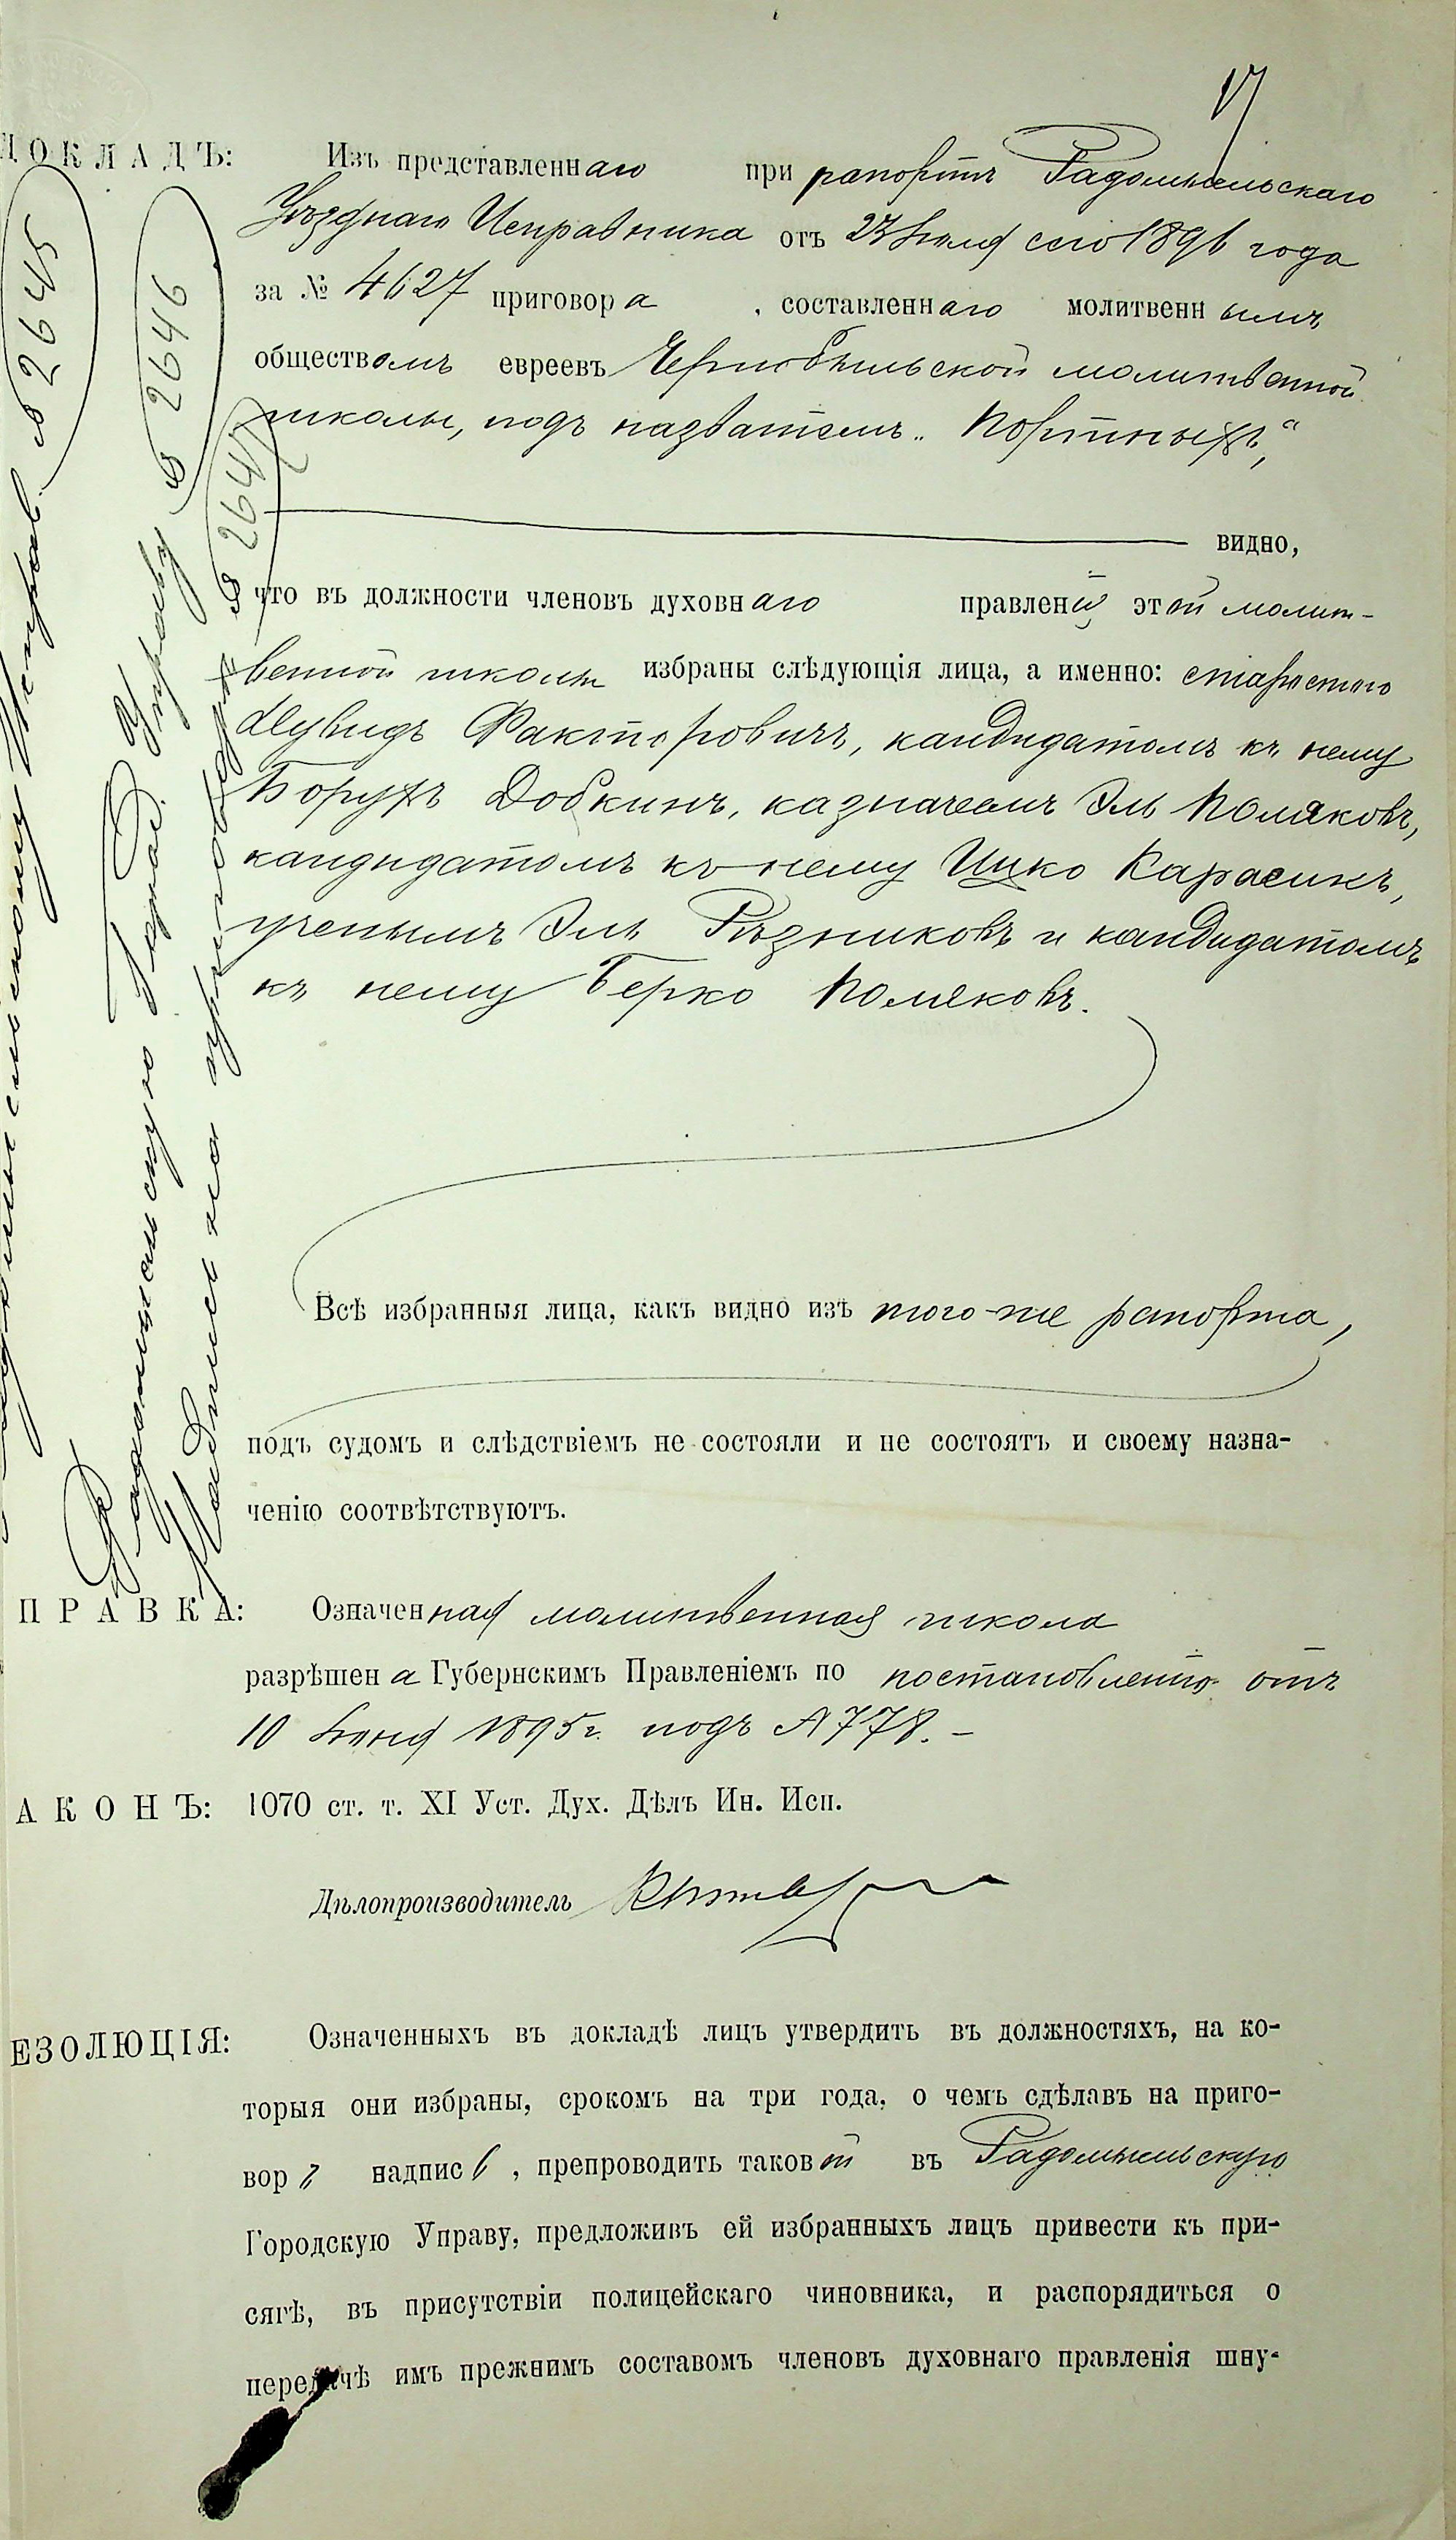 17
ДОКЛАДЪ: Изъ представленнаго при рапортѣ Радомысльскаго
Уѣзднаго Исправника отъ 23 Іюля сего 1896 года
за № 4627 приговора, составленнаго молитвеннымъ
обществомъ евреевъ Чернобыльской молитвенной
школы, подъ названіемъ „Портныхъ,“
видно,
что въ должности членовъ духовнаго правленія этой молит-
венной школы избраны слѣдующія лица, а именно: старостою
Дувидъ Факторовичъ, кандидатомъ къ нему
Борухъ Добкинъ, казначеемъ Эль Поляковъ,
кандидатомъ къ нему Ицко Карасикъ,
ученымъ Эль Рѣзниковъ и кандидатомъ
къ нему Берко Поляковъ.
Всѣ избранныя лица, какъ видно изъ того-же рапорта,
подъ судомъ и слѣдствіемъ не состояли и не состоятъ и своему назна-
ченію соотвѣтствуютъ.
ПРАВКА: Означенная молитвенная школа
разрѣшена Губернскимъ Правленіемъ по постановленію отъ
10 Іюня 1895 г. подъ № 778. –
АКОНЪ: 1070 ст. т. XI Уст. Дух. Дѣлъ Ин. Исп.
Дѣлопроизводитель
ЕЗОЛЮЦІЯ: Означенныхъ въ докладѣ лицъ утвердить въ должностяхъ, на ко-
торыя они избраны, срокомъ на три года, о чемъ сдѣлавъ на приго-
ворѣ надпись, препроводить таковой въ Радомысльскую
Городскую Управу, предложивъ ей избранныхъ лицъ привести къ при-
сягѣ, въ присутствіи полицейскаго чиновника, и распорядиться о
передачѣ имъ прежнимъ составомъ членовъ духовнаго правленія шну-
Исправ. № 2645
Радомысльскую Город. Управу № 2646
Надпись на приговорѣ № 2647